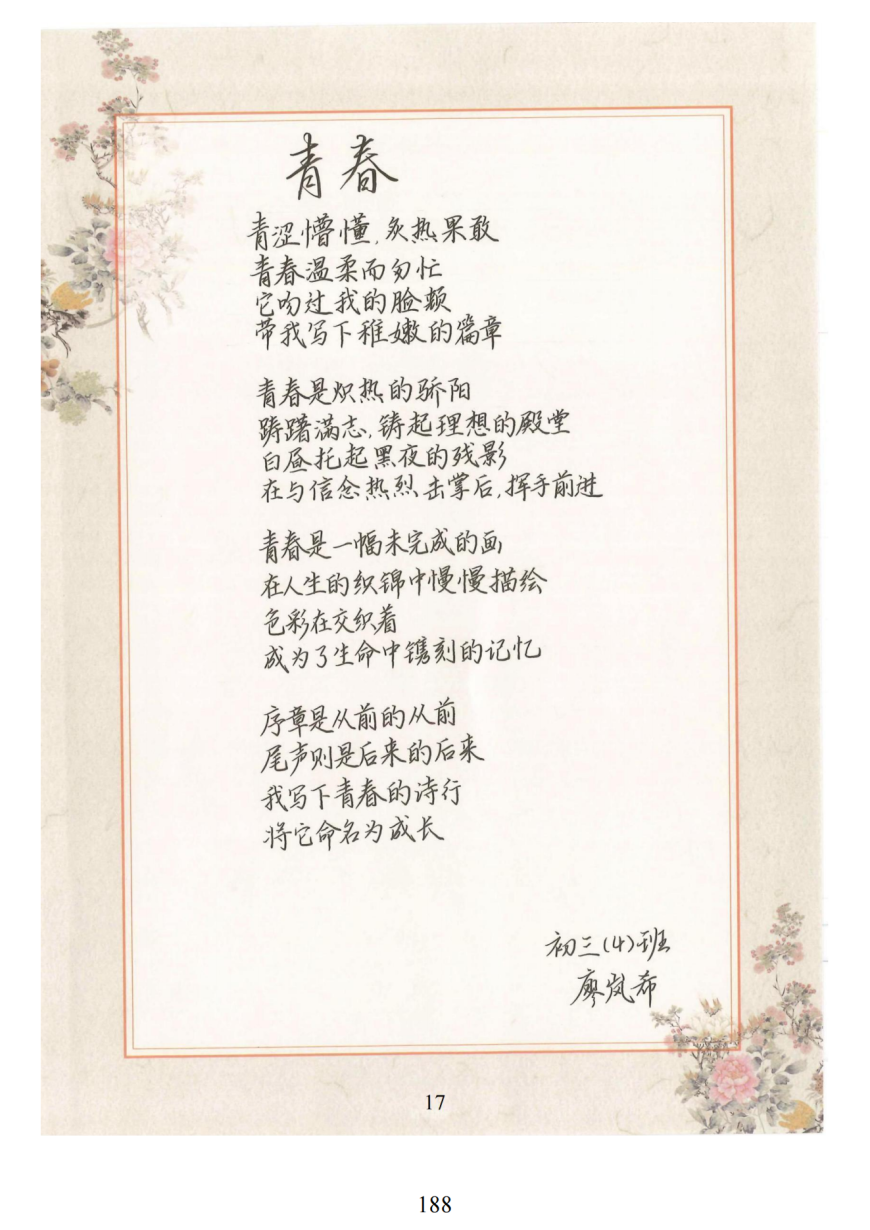 青春
青涩懵懂,炙热果敢
青春温柔而匆忙
它吻过我的脸颊
带我写下稚嫩的篇章
青春是炽热的骄阳
踌躇满志,铸起理想的殿堂
白昼托起黑夜的残影
在与信念热烈击掌后,挥手前进
青春是一幅未完成的画
在人生的织锦中慢慢描绘
色彩在交织着
成为了生命中镌刻的记忆
序章是从前的从前
尾声则是后来的后来
我写下青春的诗行
将它命名为成长
初三(4)班
廖岚希
17
188